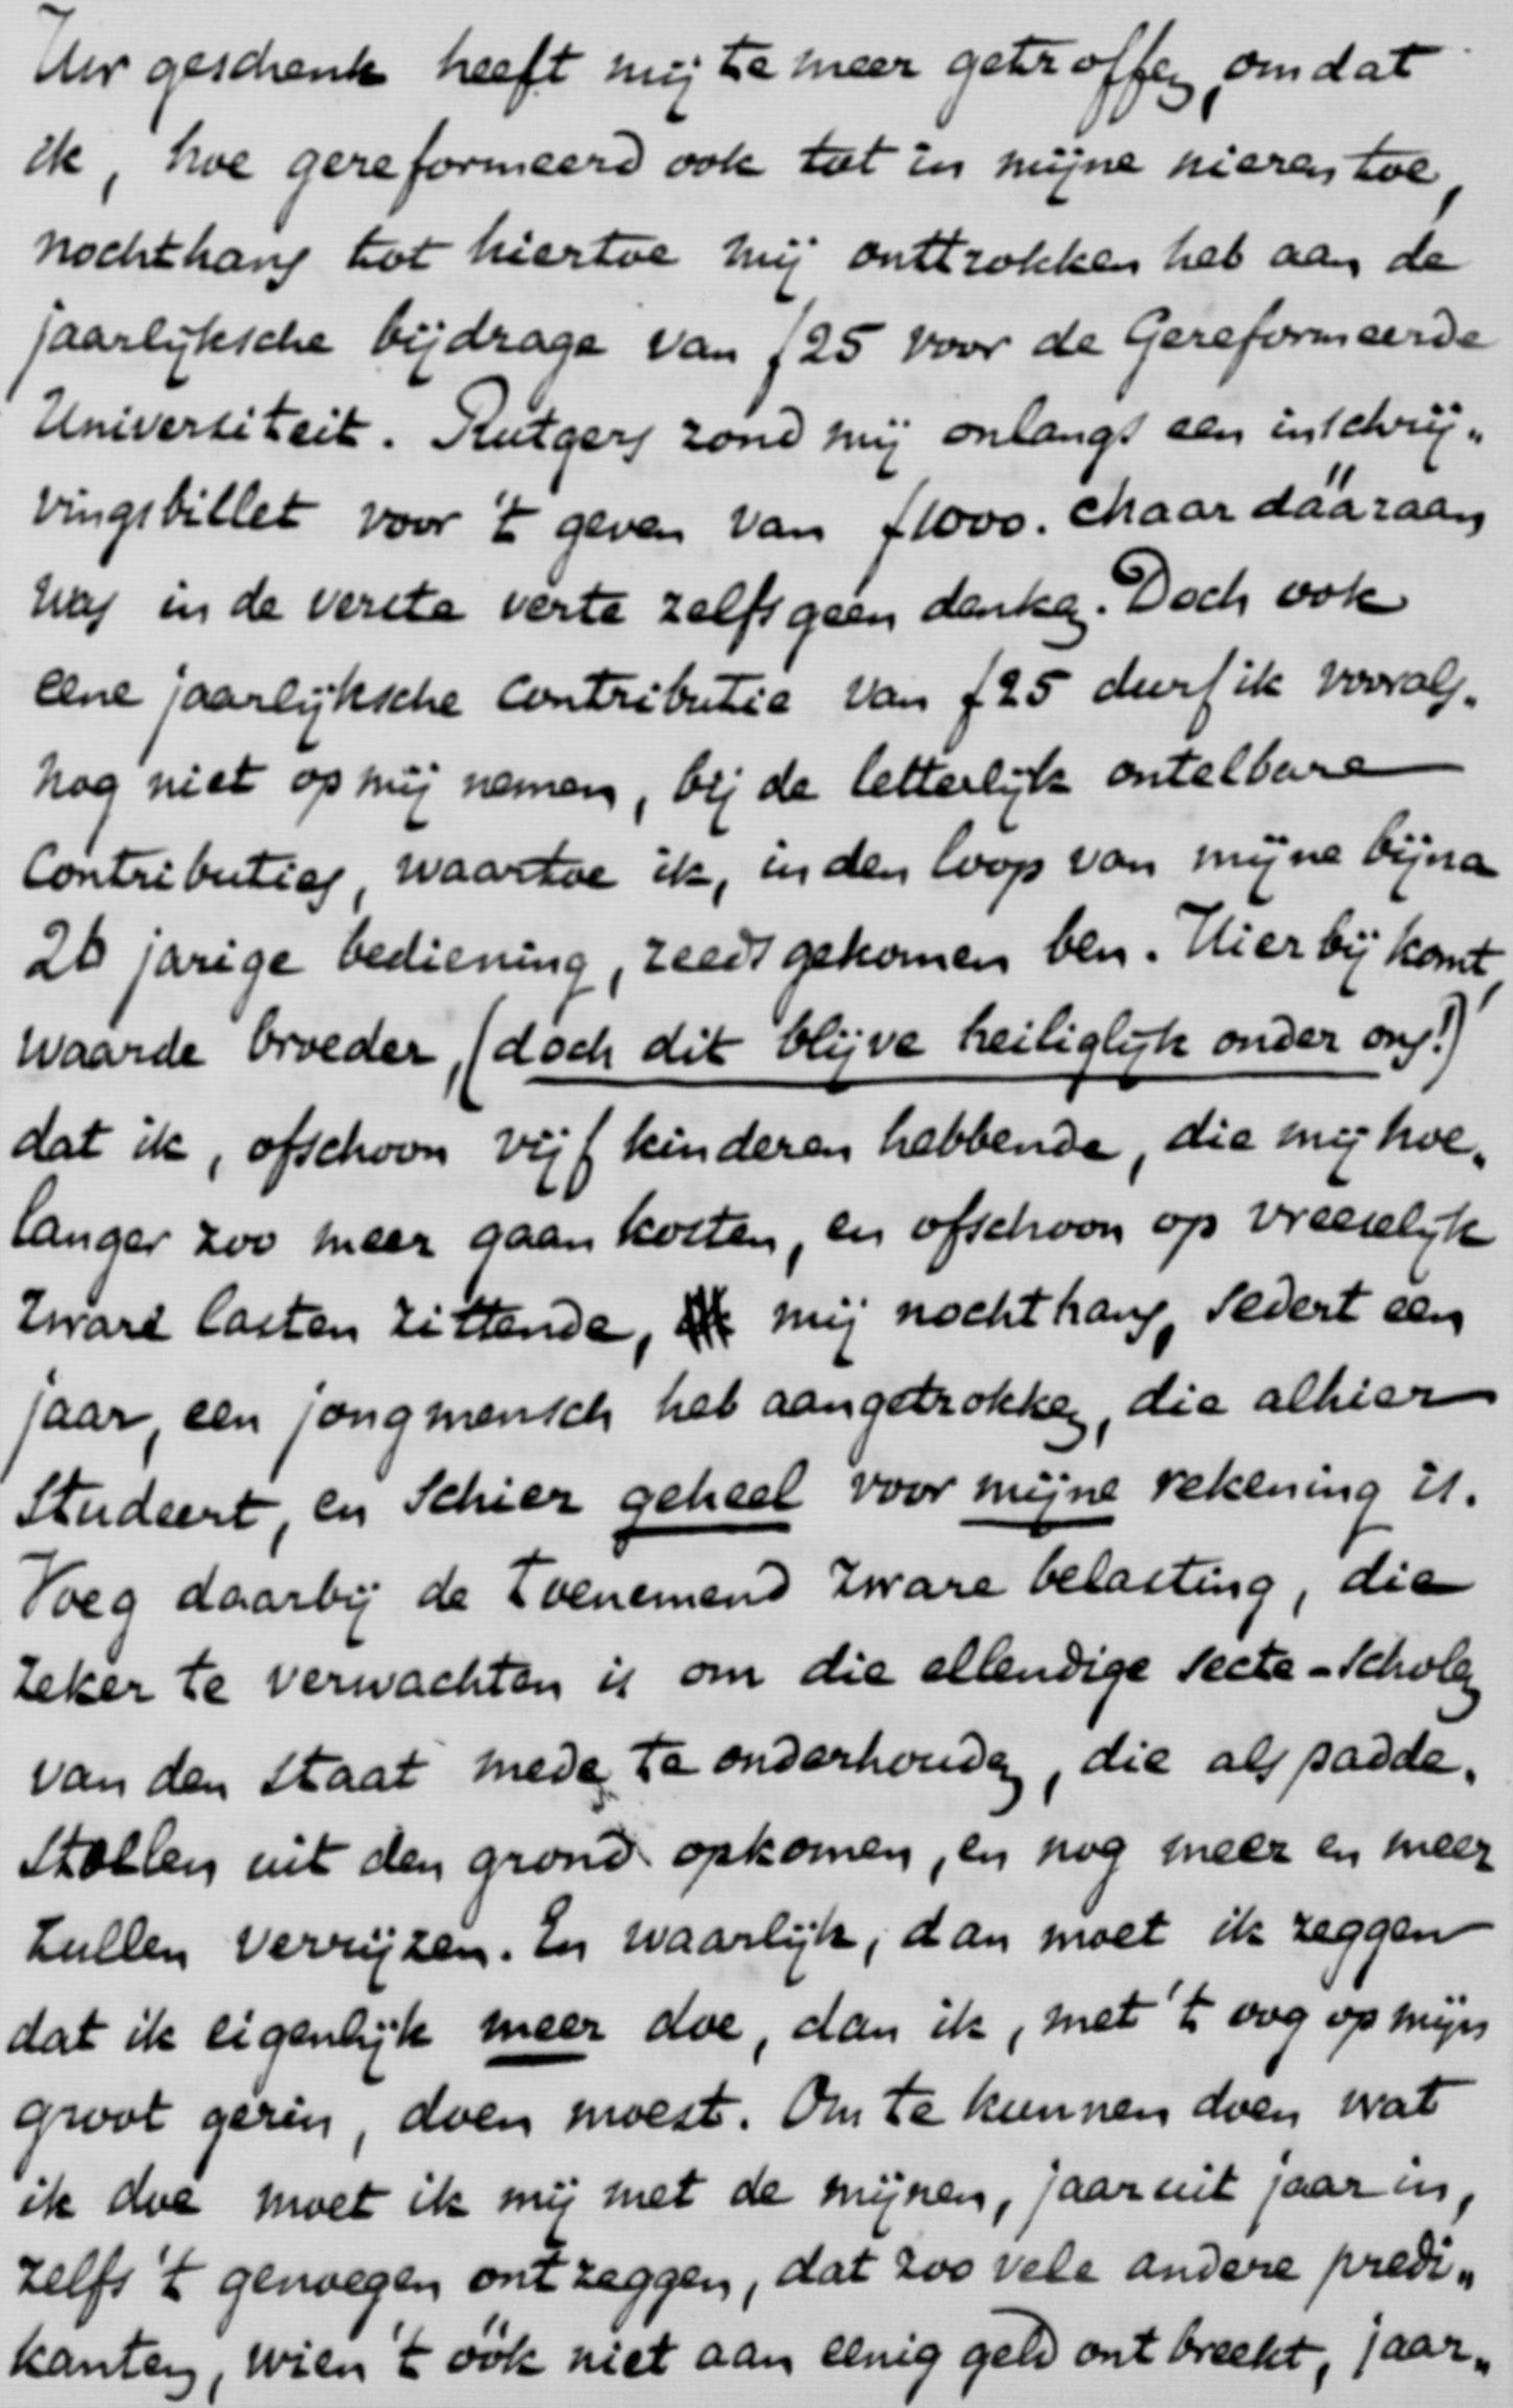 Uw geschenk heeft mij te meer getroffen, omdat
ik, hoe gereformeerd ook tot in mijne nieren toe,
nochthans tot hiertoe mij onttrokken heb aan de
jaarlijksche bijdrage van f25 voor de Gereformeerde
Universiteit. Rutgers zond mij onlangs een inschrij„
vingsbillet voor 't geven van f1000. Maar dááraan
was in de verste verte zelfs geen denken. Doch ook
eene jaarlijksche contributie van f25 durf ik voorals„
nog niet op mij nemen, bij de letterlijk ontelbare
Contributies, waartoe ik, in den loop van mijne bijna
26 jarige bediening, reeds gekomen ben. Hierbij komt,
waarde broeder, (doch dit blijve heiliglijk onder ons!)
dat ik, ofschoon vijf kinderen hebbende, die mij hoe„
langer zoo meer gaan kosten, en ofschoon op vreeselijk
zware lasten zittende, mij nochthans, sedert een
jaar, een jongmensch heb aangetrokken, die alhier
Studeert, en schier geheel voor mijne rekening is.
Voeg daarbij de toenemend zware belasting, die
zeker te verwachten is om die ellendige secte-scholen
van den Staat mede te onderhouden, die als padde„
stoelen uit den grond opkomen, en nog meer en meer
zullen verrijzen. En waarlijk, dan moet ik zeggen
dat ik eigenlijk meer doe, dan ik, met 't oog op mijn
groot gezin, doen moest. Om te kunnen doen wat
ik doe moet ik mij met de mijnen, jaar uit jaar in,
zelfs 't genoegen ontzeggen, dat zoo vele andere predi„
kanten, wien 't óók niet aan eenig geld ontbreekt, jaar„